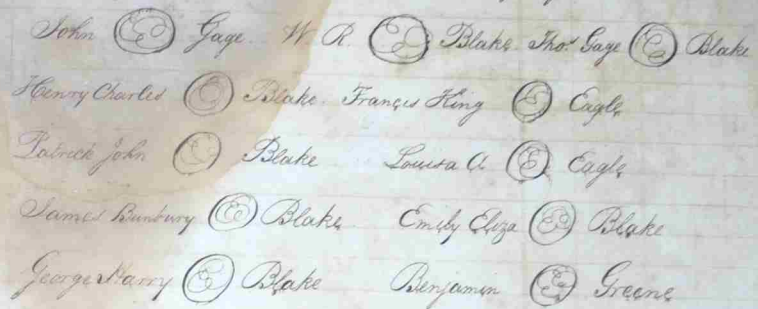 John Gage W R. Blake Thos. Gage Blake
Henry Charles Blake Francis King Eagle
Patrick John Blake Louisa A. Eagle
James Bunbury Blake Emily Eliza Blake
George Harry Blake Benjamin Greene